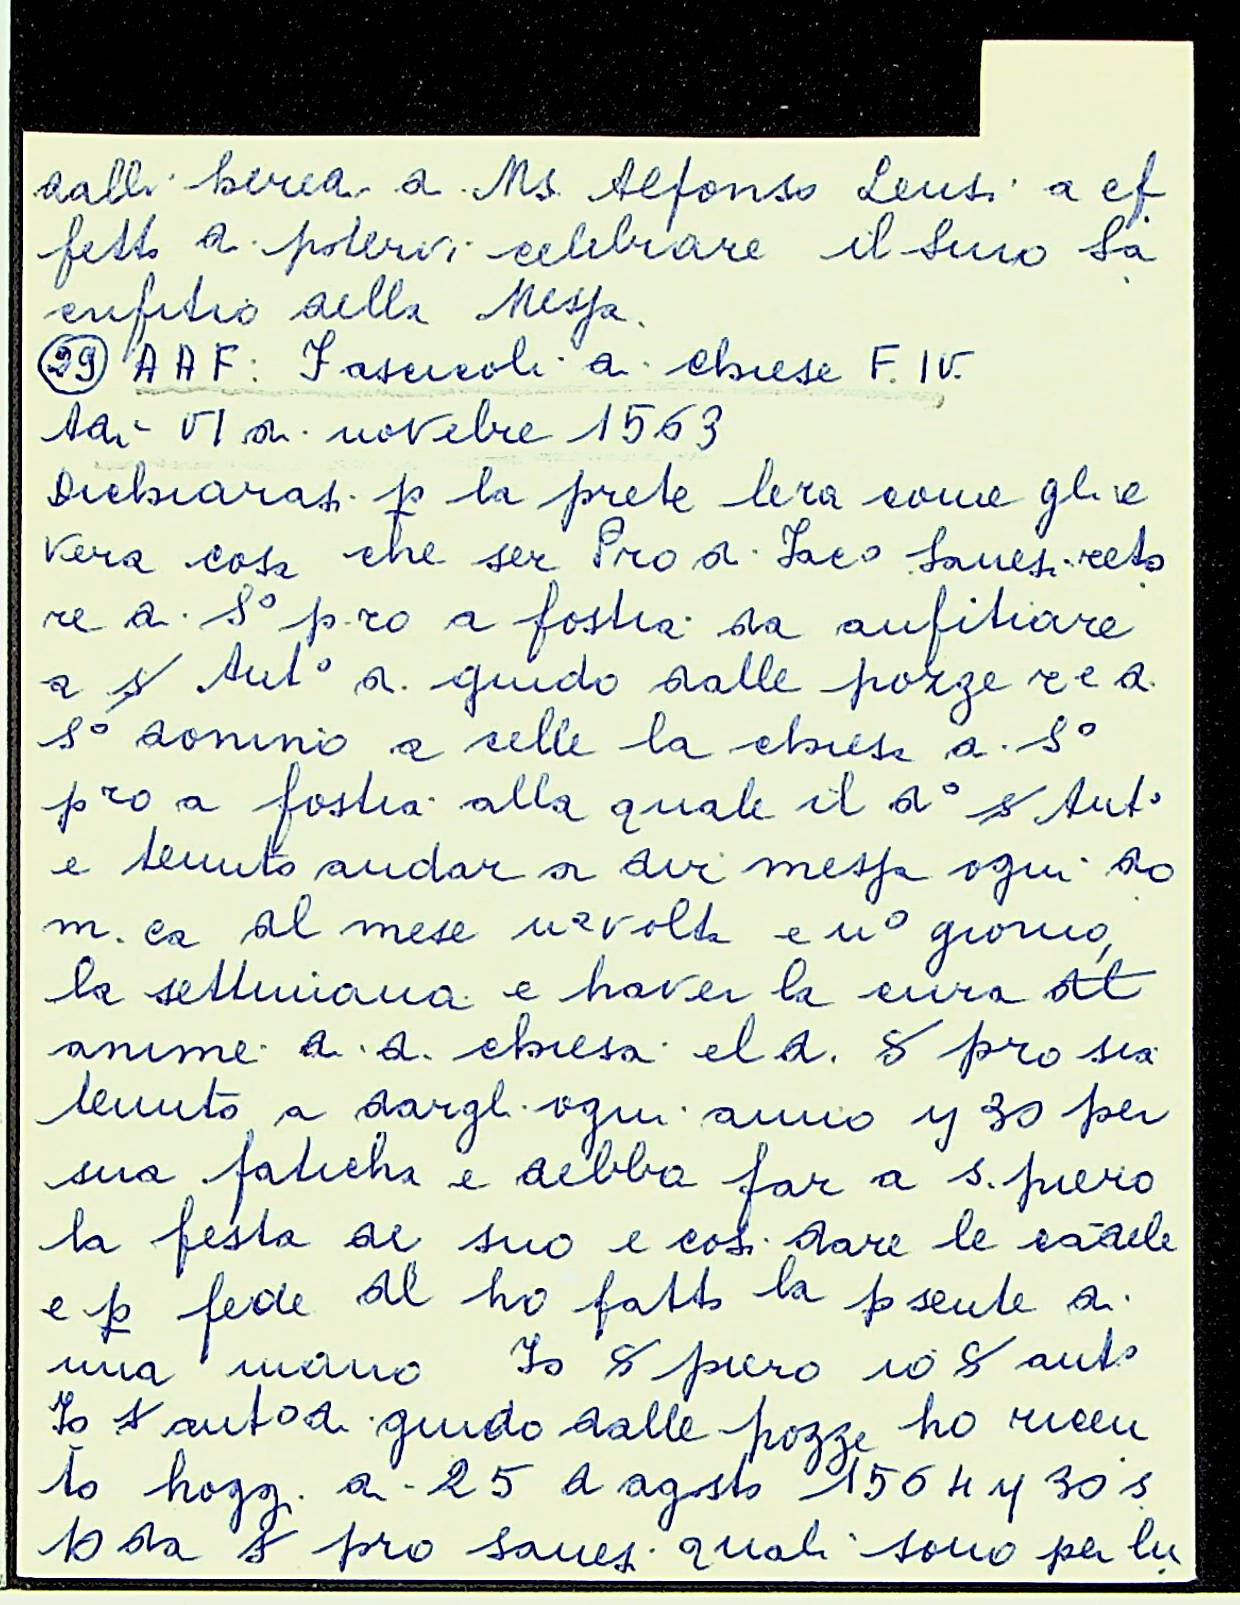 dalli heredi di Ms Alfonso Lensi a ef
fetto di potervi celebrare il Smo Sa
crifitio della Messa.
29 AAF: Fascicoli di chiese F. IV.
Adi VI di novebre 1563
Dichiarasi p la prete lera come gli e
vera cosa che ser Pro di Iaco Sanesi reto
re di So pro a fostia da aufitiare
a s Anto di guido dalle pozze re di
So donino a celle la chiesa di So
pro a fostia alla quale il do s Anto
e tenuto andar a dir messa ogni do
m.ca al mese uavolta e uo giorno,
la settimana e haver la cura dl
anime di d. chiesa el d. S pro sia
tenuto a dargli ogni anno y 30 per
sua faticha e debba far a s. piero
la festa de suo e cosi dare le cādele
e p fede dl ho fatto la psente di
mia mano Io S piero io S anto
Io s anto di guido dalle pozze ho riceu
to hoggi di 25 d agsto 1564 y 30 s
10 da s pro sanesi quali sono per lu